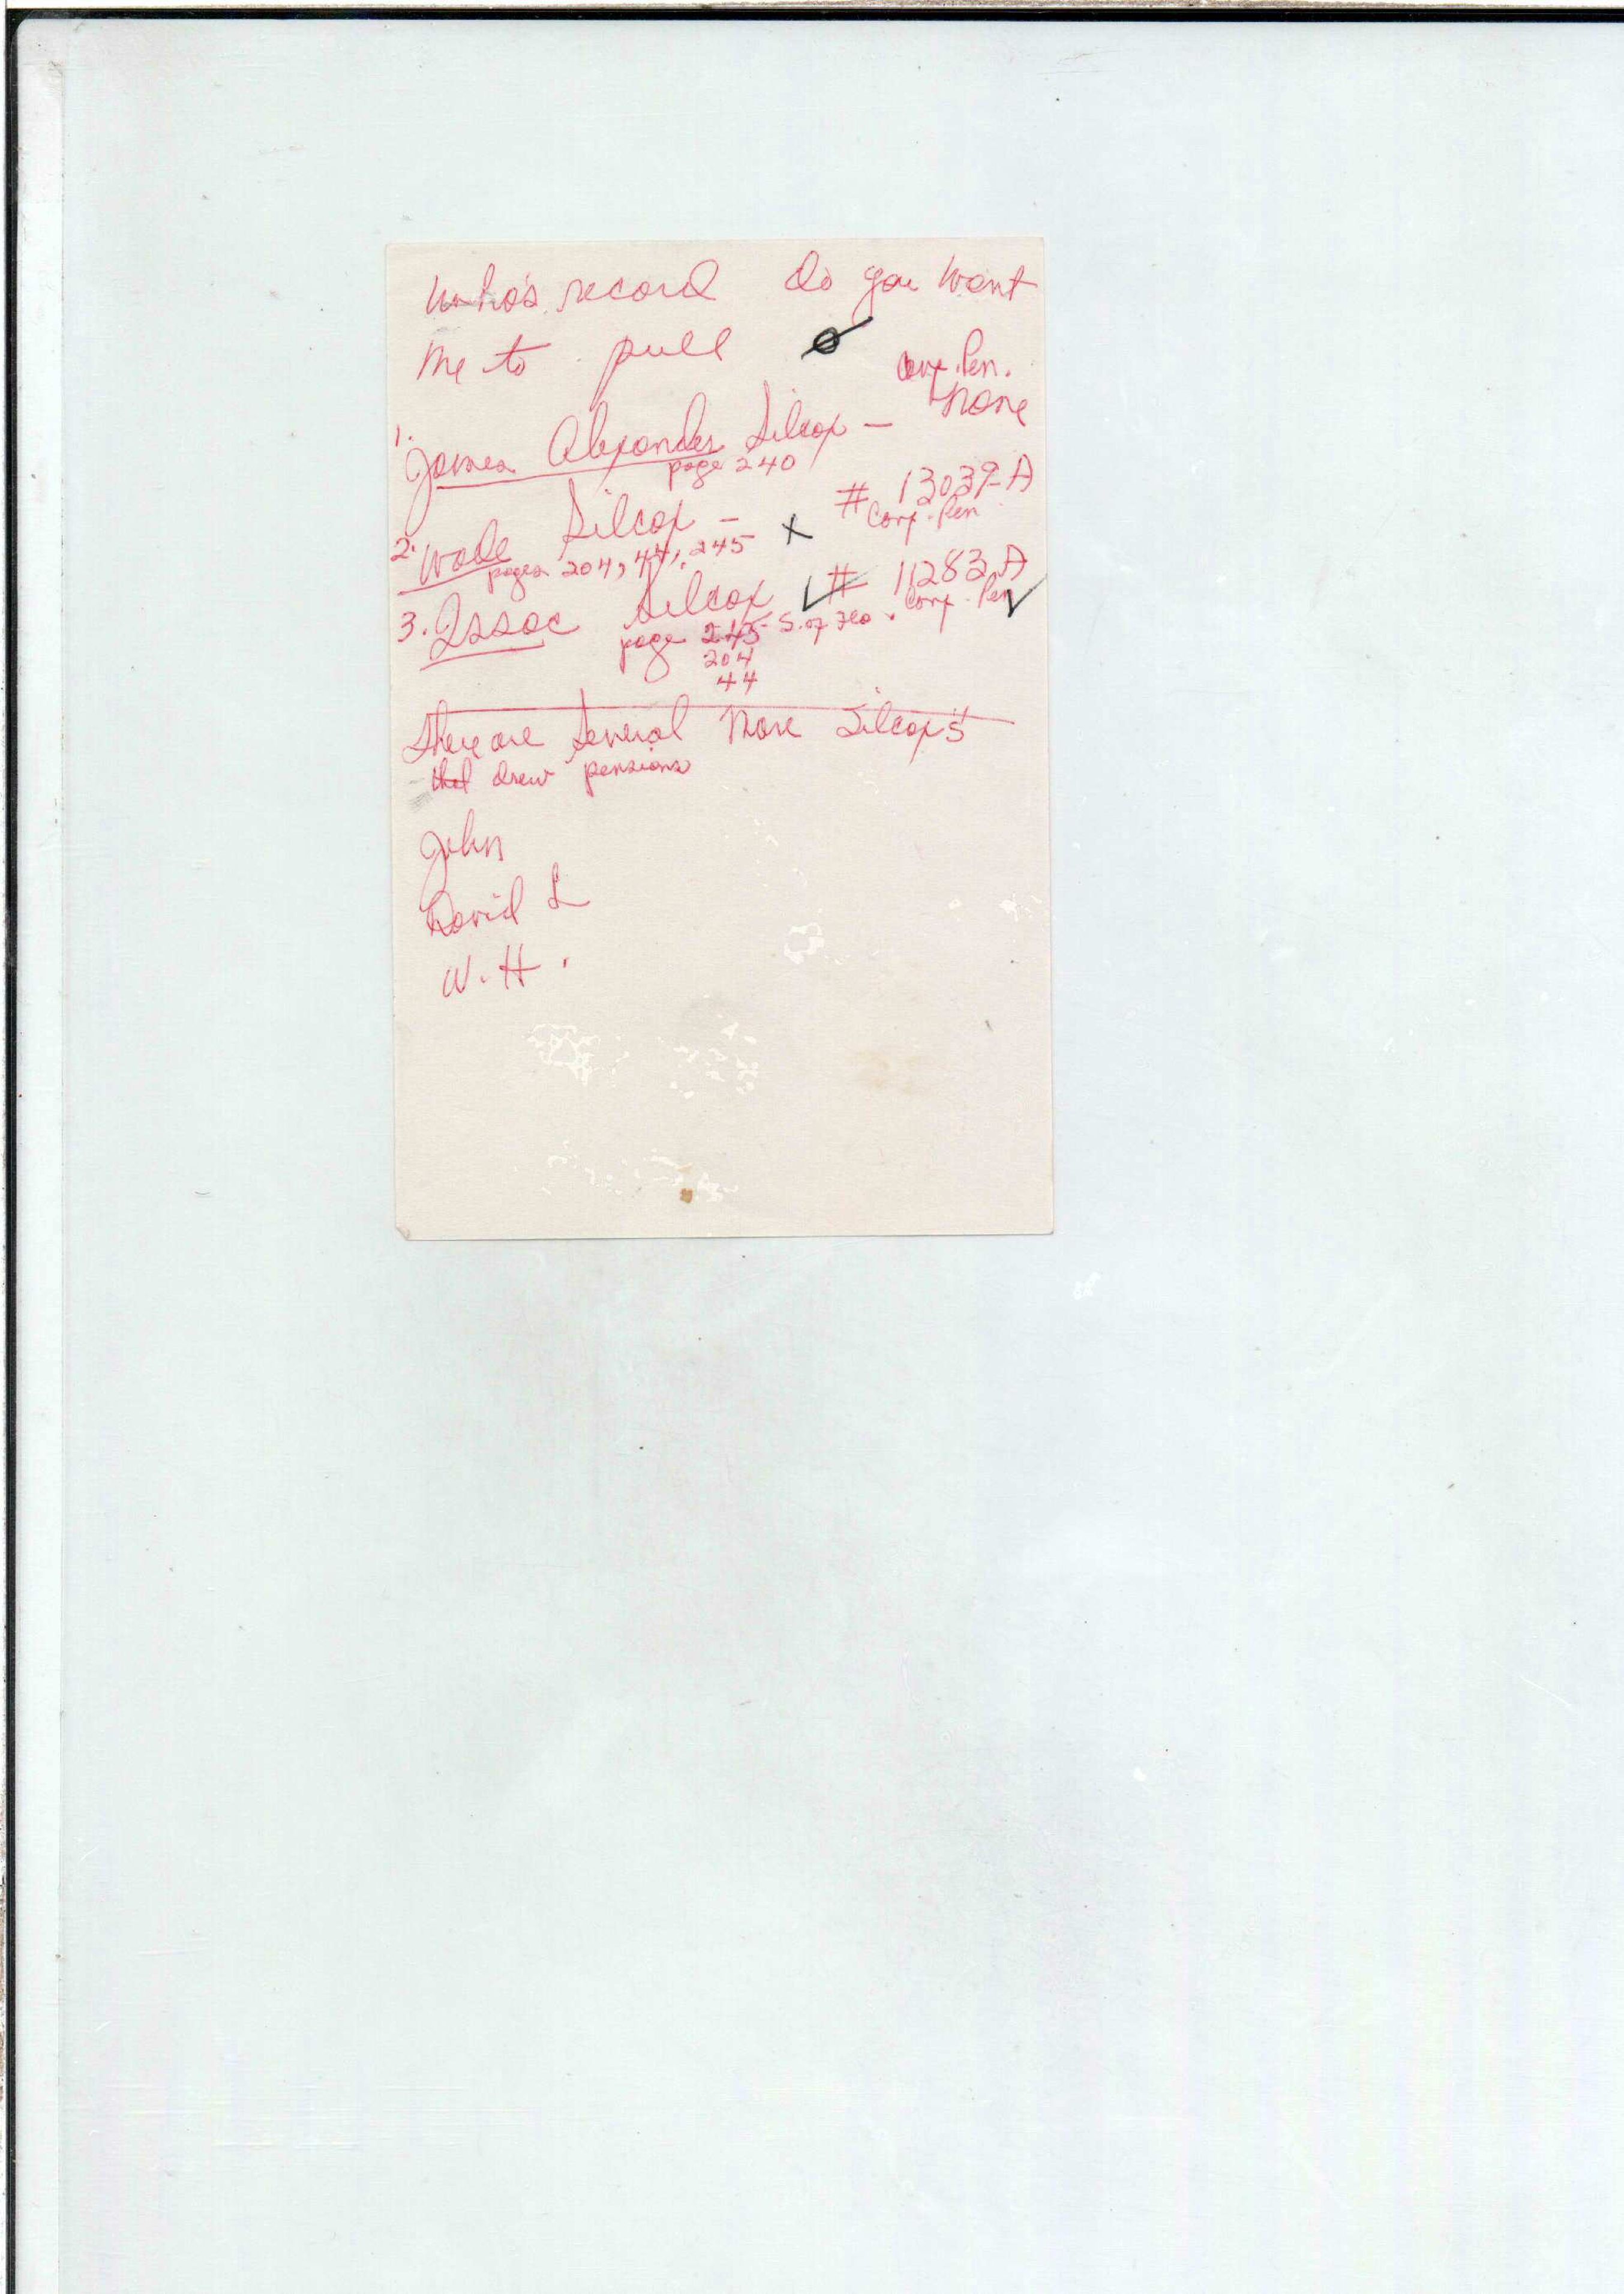 Who's record do you want
me to pull
Conf. Pen.
None
1. James Alexander Silcox –
page 240
2. Wade Silcox – X # 13039-A
pages 204, 44, 245 Conf. Pen
3. Issac Silcox ✓ # 11283 A
page 245 - S. of Geo. Conf. Pen ✓
204
44
There are several more Silcox's
that drew pensions
John
David L
W. H.